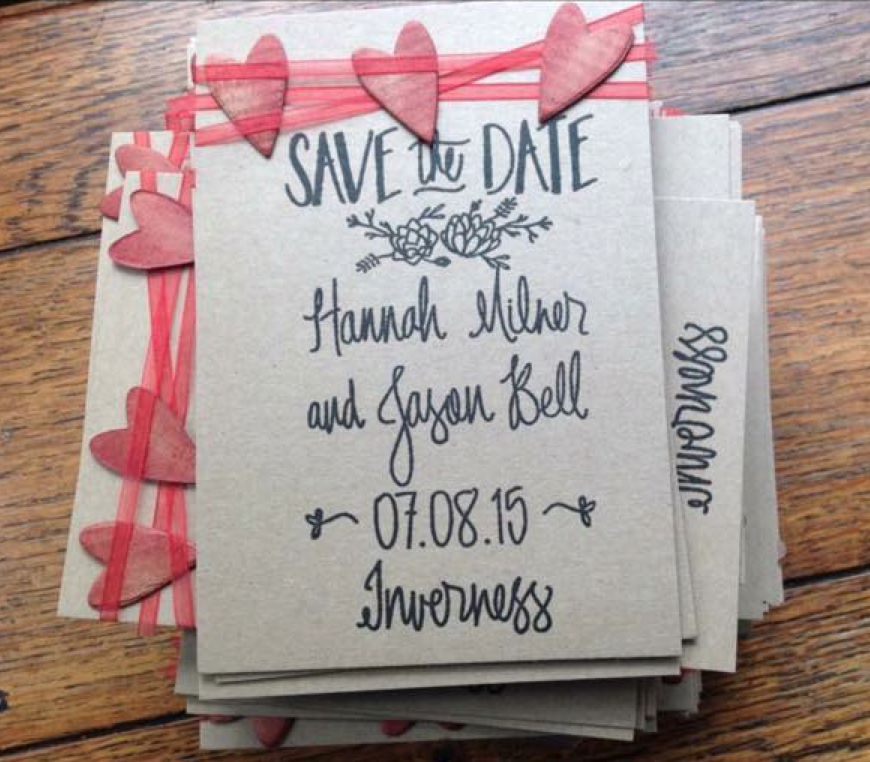 SAVE the DATE
Hannah Milner
and Jason Bell
07.08.15
Inverness
Inverness